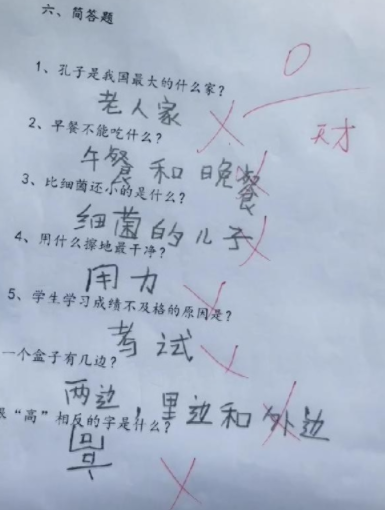 六、简答题
1、孔子是我国最大的什么家?
老人家
0
2、早餐不能吃什么?
天才
午餐和晚餐
3、比细菌还小的是什么?
细菌的儿子
4、用什么擦地最干净?
用力
5、学生学习成绩不及格的原因是?
考试
一个盒子有几边?
两边,里边和外边
“高”相反的字是什么?